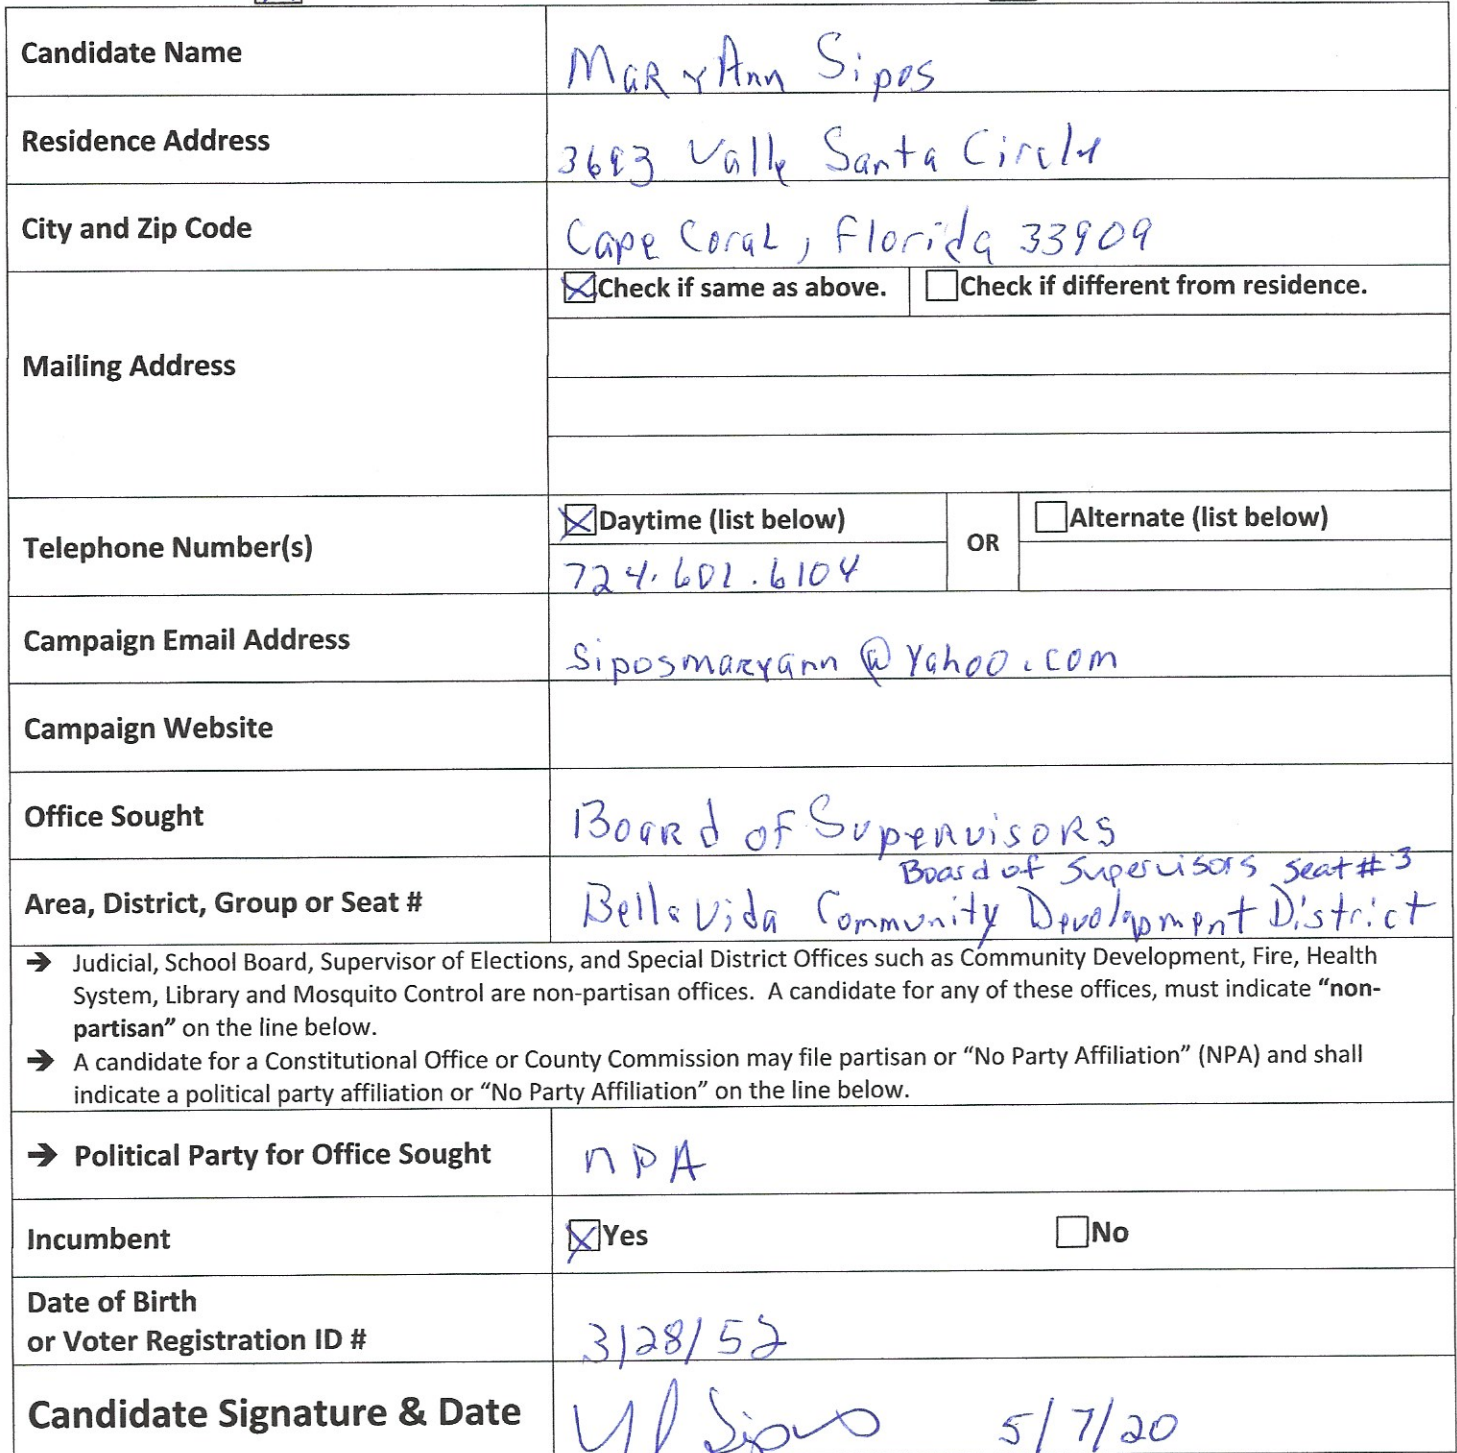 Candidate Name MaryAnn Sipos
Residence Address 3693 Valle Santa Circle
City and Zip Code Cape Coral, Florida 33909
Check if same as above. Check if different from residence.
Mailing Address
Daytime (list below) OR Alternate (list below)
Telephone Number(s)
724.601.6104
Campaign Email Address siposmaryann@yahoo.com
Campaign Website
Office Sought Board of Supervisors
Board of Supervisors Seat #3
Area, District, Group or Seat # Bella Vida Community Development District
➔ Judicial, School Board, Supervisor of Elections, and Special District Offices such as Community Development, Fire, Health
System, Library and Mosquito Control are non-partisan offices. A candidate for any of these offices, must indicate “non-
partisan” on the line below.
➔ A candidate for a Constitutional Office or County Commission may file partisan or “No Party Affiliation” (NPA) and shall
indicate a political party affiliation or “No Party Affiliation” on the line below.
➔ Political Party for Office Sought NPA
Incumbent Yes No
Date of Birth
or Voter Registration ID # 3/28/52
Candidate Signature & Date 5/7/20